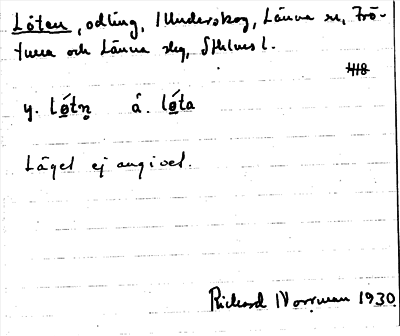 Löten, odling, Munderskog, Länna sn, Frö-
tuna och Länna skg, Sthlms l.
418
y. lǿtn̥ å. lǿta
Läget ej angivet.
Richard Norrman 1930